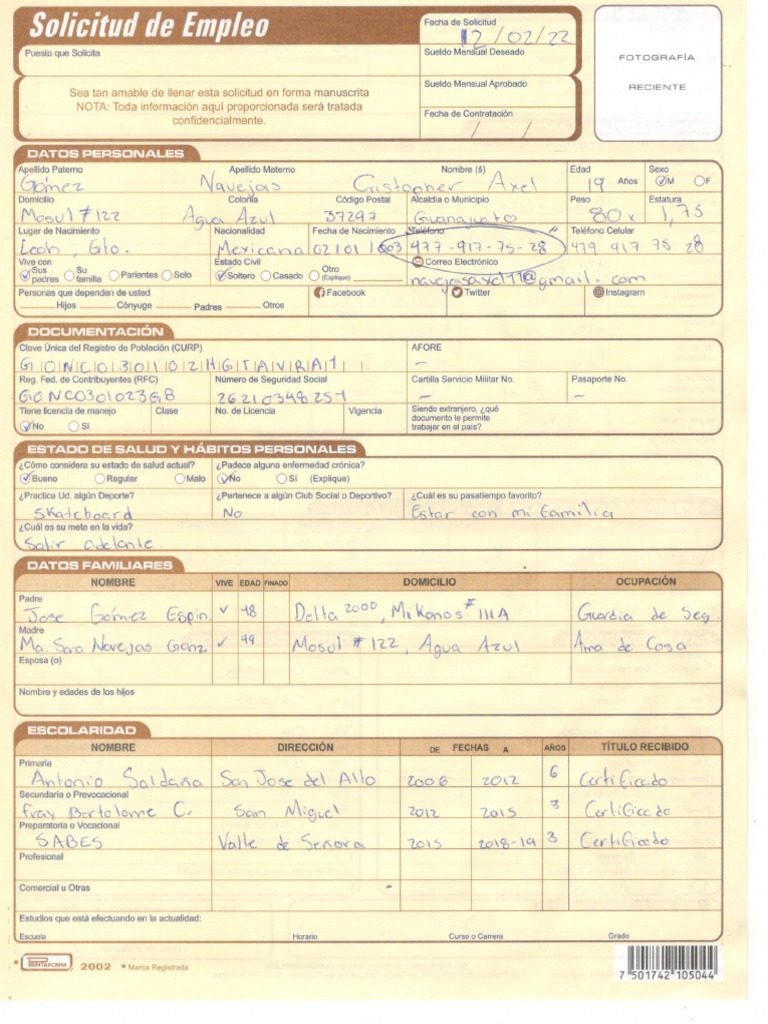 Solicitud de Empleo
Fecha de Solicitud
12/02/22
Puesto que Solicita
Sueldo Mensual Deseado
FOTOGRAFÍA
RECIENTE
Sea tan amable de llenar esta solicitud en forma manuscrita
NOTA: Toda información aquí proporcionada será tratada
confidencialmente.
Sueldo Mensual Aprobado
Fecha de Contratación
/ /
DATOS PERSONALES
Apellido Paterno Apellido Materno Nombre (s) Edad Sexo
Gómez Navejas Cristopher Axel 19 Años M F
Domicilio Colonia Código Postal Alcaldía o Municipio Peso Estatura
Mosul #122 Agua Azul 37297 Guanajuato 80 K 1,75
Lugar de Nacimiento Nacionalidad Fecha de Nacimiento Teléfono Teléfono Celular
León, Gto. Mexicana 02/01/ 477-917-75-28 479 917 75 28
Vive con Estado Civil Correo Electrónico
Sus padres Su familia Parientes Solo Soltero Casado Otro (Explique)
@gmail.com
Personas que dependen de usted Facebook Twitter Instagram
Hijos Cónyuge Padres Otros
DOCUMENTACIÓN
Clave Única del Registro de Población (CURP) AFORE
GONC030102HGTAVRA1 –
Reg. Fed. de Contribuyentes (RFC) Número de Seguridad Social Cartilla Servicio Militar No. Pasaporte No.
GONC0301023G8 26210348257 – –
Tiene licencia de manejo Clase No. de Licencia Vigencia Siendo extranjero, ¿qué
documento le permite
No Sí trabajar en el país?
ESTADO DE SALUD Y HÁBITOS PERSONALES
¿Cómo considera su estado de salud actual? ¿Padece alguna enfermedad crónica?
Bueno Regular Malo No Sí (Explique)
¿Practica Ud. algún Deporte? ¿Pertenece a algún Club Social o Deportivo? ¿Cuál es su pasatiempo favorito?
Skateboard No Estar con mi familia
¿Cuál es su meta en la vida?
Salir adelante.
DATOS FAMILIARES
NOMBRE VIVE EDAD FINADO DOMICILIO OCUPACIÓN
Padre
Jose Gómez Espin. 48 Delta 2000, Mikonos #111A Guardia de Seg.
Madre
Ma. Sara Navejas Gonz. 49 Mosul #122, Agua Azul Ama de Casa
Esposa (o)
Nombre y edades de los hijos
ESCOLARIDAD
NOMBRE DIRECCIÓN DE FECHAS A AÑOS TÍTULO RECIBIDO
Primaria
Antonio Saldaña San Jose del Alto 2006 2012 6 Certificado
Secundaria o Prevocacional
Fray Bartolome C. San Miguel 2012 2015 3 Certificado
Preparatoria o Vocacional
SABES Valle de Señora 2015 2018-19 3 Certificado
Profesional
Comercial u Otras
Estudios que está efectuando en la actualidad:
Escuela Horario Curso o Carrera Grado
PRINTAFORM 2002 * Marca Registrada
7 501742 105044